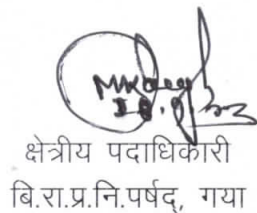 क्षेत्रीय पदाधिकारी
बि.रा.प्र.नि.पर्षद, गया